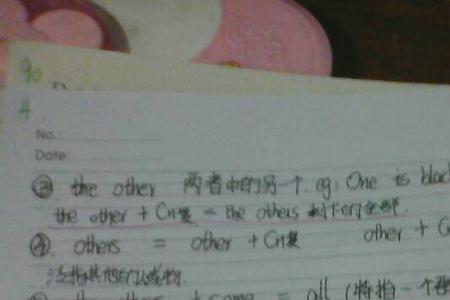 90
4
No.:
Date:
③ the other 两者中的另一个. eg: One is blac
the other + Cn复 = the others 剩下的全部.
④ others = other + Cn复 other + C
泛指其他的人或物.
= all (特指一个